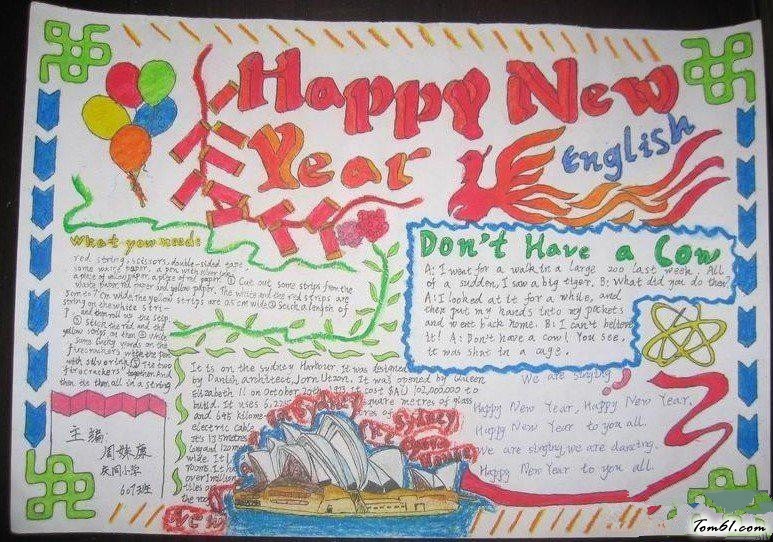 Happy New
Year
English
What you need:
red string, scissors, double-sided tape,
some waste paper, a pen with silver ink,
a piece of yellow paper, a piece of red paper
waste paper, red paper and yellow paper. ① Cut out some strips from the
The white and the red strips are
5cm to 7 cm wide. The yellow strips are 0.5cm wide ② Stick a length of
string on the white stri-
p and then roll up the strip
③ Stick the red and the
yellow strips on them ④ Write
some lucky words on the
firecrackers with the pen
with silver ink ⑤ Tie two
"firecrackers" together And
then tie them all in a string
Don't Have a Cow
A: I went for a walk in a large zoo last week. All
of a sudden, I saw a big tiger. B: What did you do then?
A: I looked at it for a while, and
then put my hands into my pockets
and went back home. B: I can't believe
it! A: Don't have a cow! You see,
it was shut in a cage.
It is on the Sydney Harbour. It was designed
by Danish architect, Jorn Utzon. It was opened by Queen
Elizabeth II on October 20th, 1973. It cost $AU 102,000,000 to
build. It uses square metres of glass
and 645 kilome
electric cable
It's 175 metres
long and 120 m
wide. It
rooms. It ha
over 1 million
tiles
the roo
Sydney
Opera
House
We are singing
Happy New Year, Happy New Year,
Happy New Year to you all.
We are singing, we are dancing.
Happy New Year to you all.
主编
周姝庚
小学
601班
Tom61.com